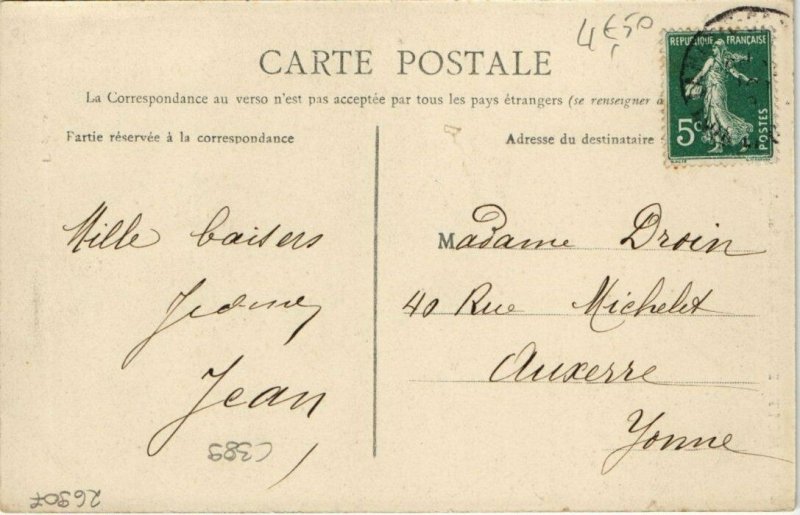 4€,50
CARTE POSTALE
REPUBLIQUE FRANÇAISE
5c
POSTES
La Correspondance au verso n'est pas acceptée par tous les pays étrangers (se renseigner à
Partie réservée à la correspondance
Adresse du destinataire
Mille baisers
Jean
Madame Droin
40 Rue Michelet
Auxerre
Yonne
C389
26907